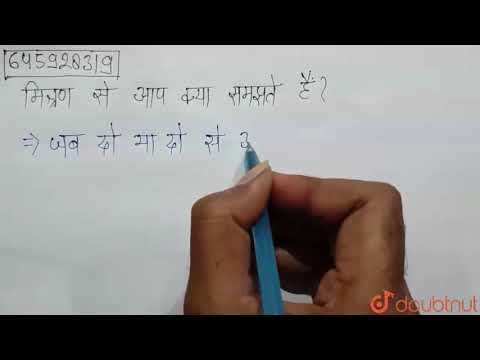 645928319
मिश्रण से आप क्या समझते हैं?
⇒ जब दो या दो से अ
doubtnut